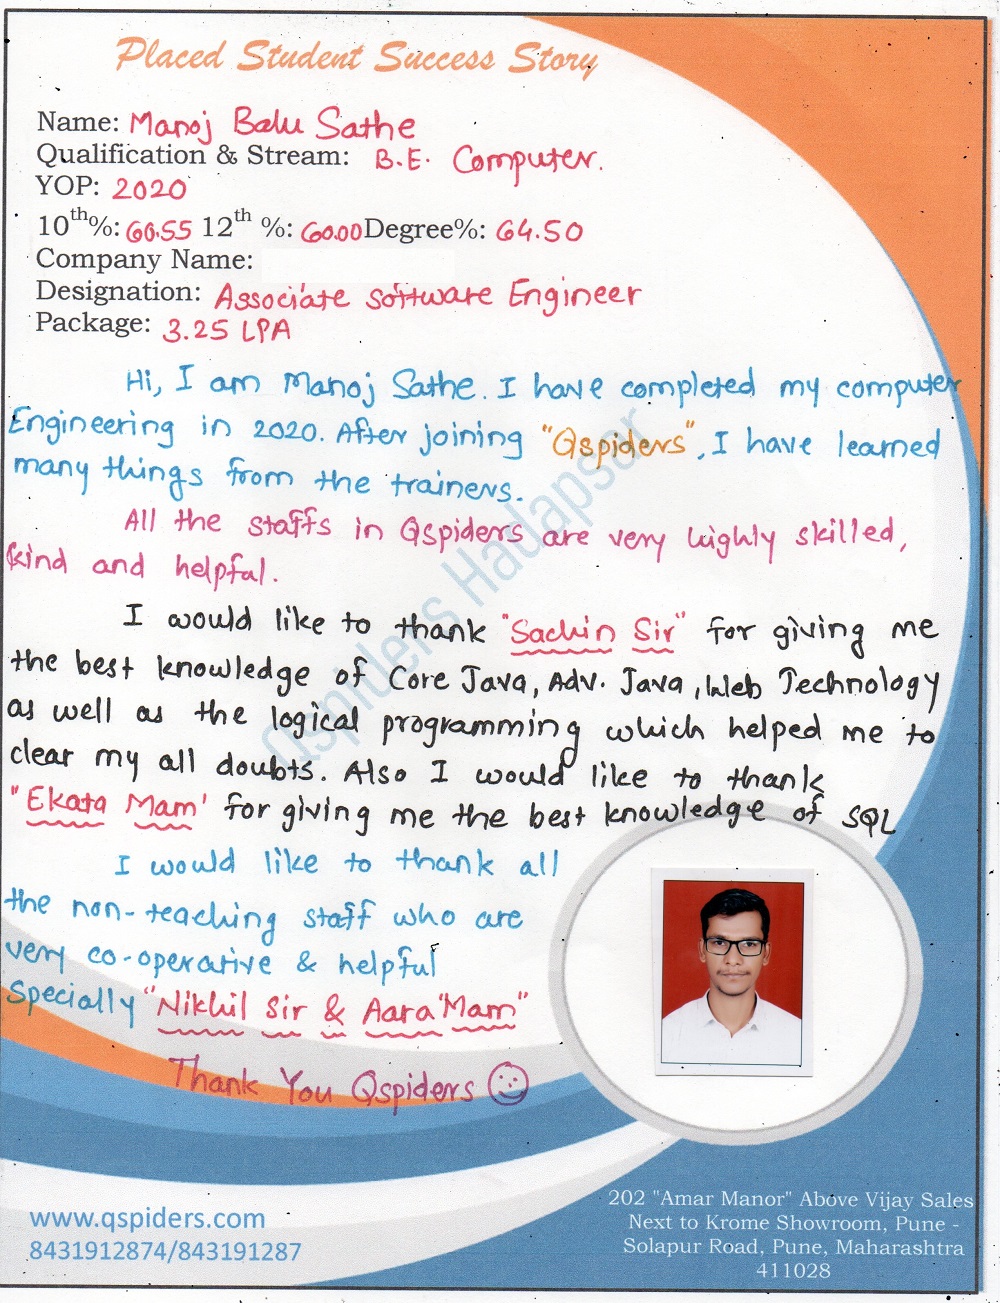 Placed Student Success Story
Name: Manoj Balu Sathe
Qualification & Stream: B.E. Computer.
YOP: 2020
10th%: 60.55 12th %: 60.00 Degree%: 64.50
Company Name:
Designation: Associate software Engineer
Package: 3.25 LPA
Hi, I am Manoj Sathe. I have completed my computer
Engineering in 2020. After joining "Qspiders", I have learned
many things from the trainers.
All the staffs in Qspiders are very highly skilled,
kind and helpful.
I would like to thank "Sachin Sir" for giving me
the best knowledge of Core Java, Adv. Java, Web Technology
as well as the logical programming which helped me to
clear my all doubts. Also I would like to thank
"Ekata Mam' for giving me the best knowledge of SQL
I would like to thank all
the non-teaching staff who are
very co-operative & helpful
Specially "Nikhil Sir & Aara Mam"
Thank You Qspiders
Qspiders Hadapsar
www.qspiders.com
8431912874/843191287
202 "Amar Manor" Above Vijay Sales
Next to Krome Showroom, Pune -
Solapur Road, Pune, Maharashtra
411028